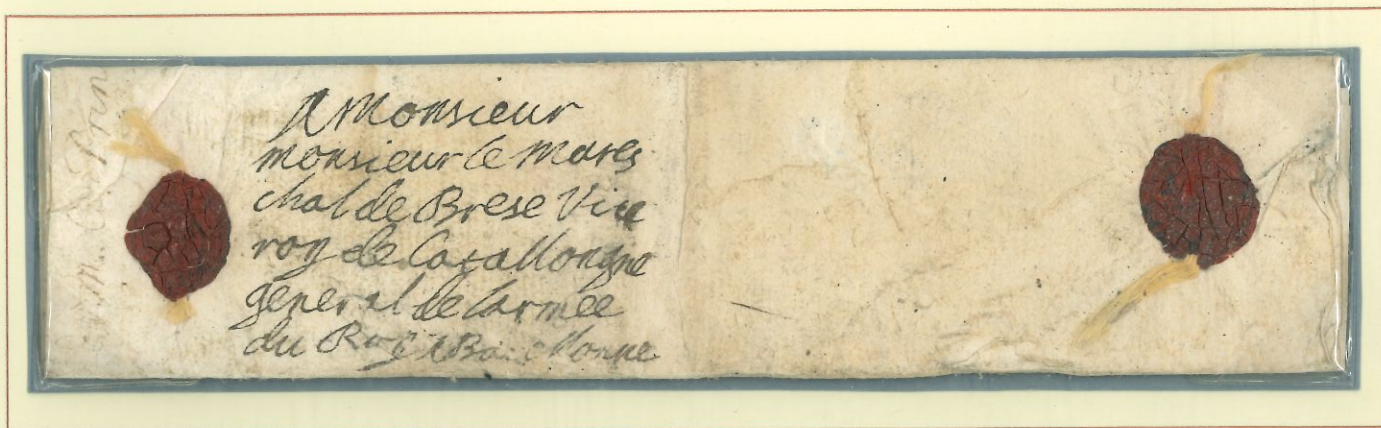 A Monsieur
monsieur le mares
chal de Brese Vice
roy de Catallongne
general de larmee
du Roy A Barcellonne